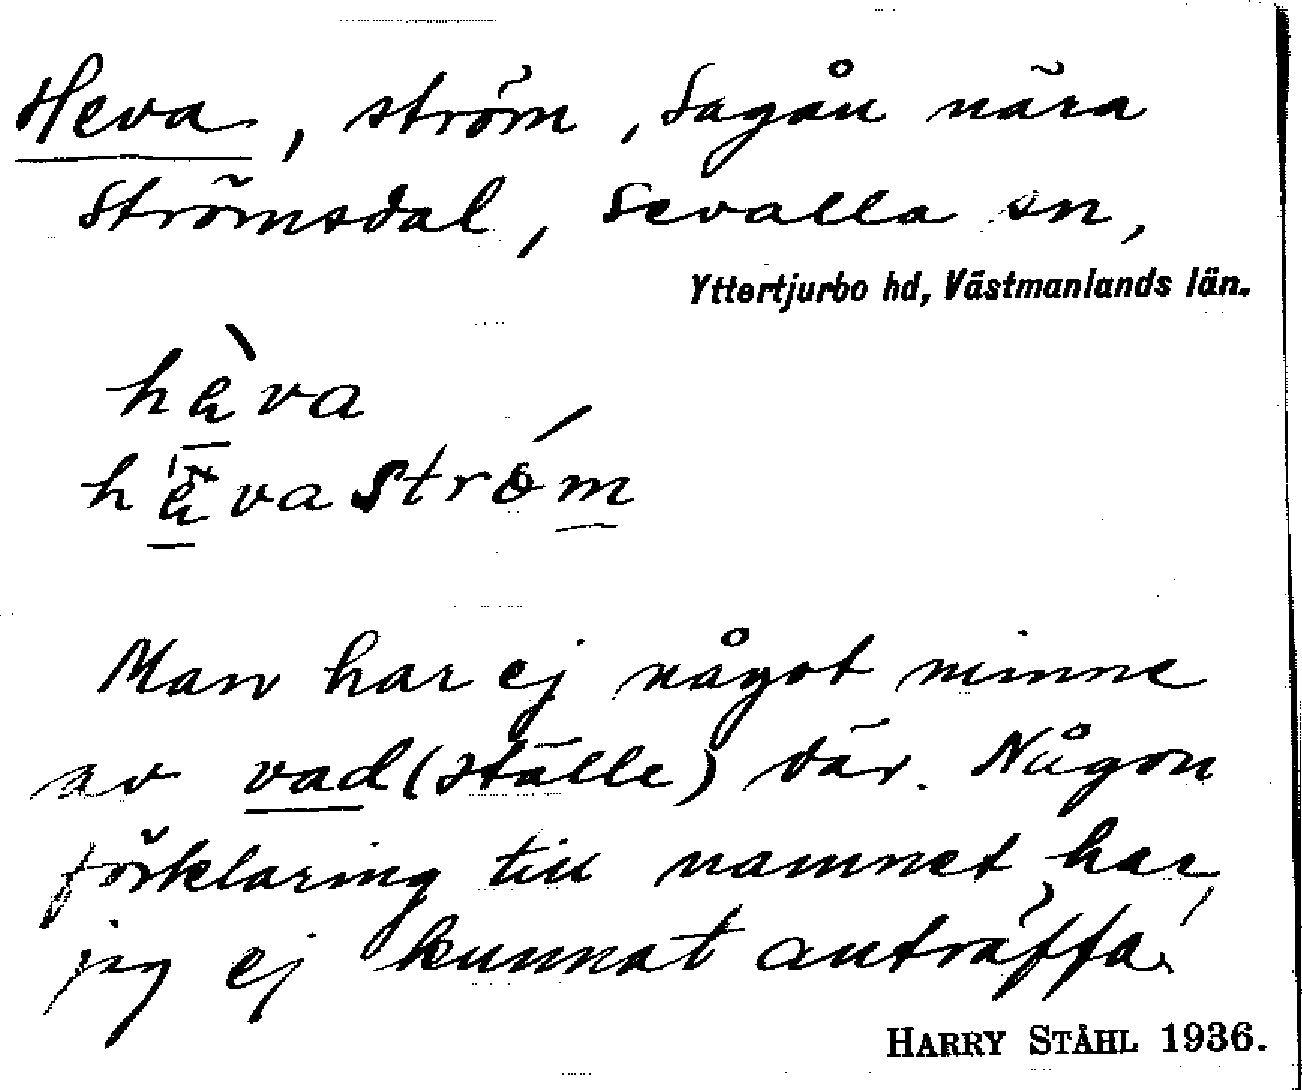 Heva, ström, Sagån nära
Strömsdal, Sevalla sn,
Yttertjurbo hd, Västmanlands län.
hèva
hèvaström
Man har ej något minne
av vad (ställe) där. Någon
förklaring till namnet har
jag ej kunnat anträffa.
HARRY STÅHL 1936.